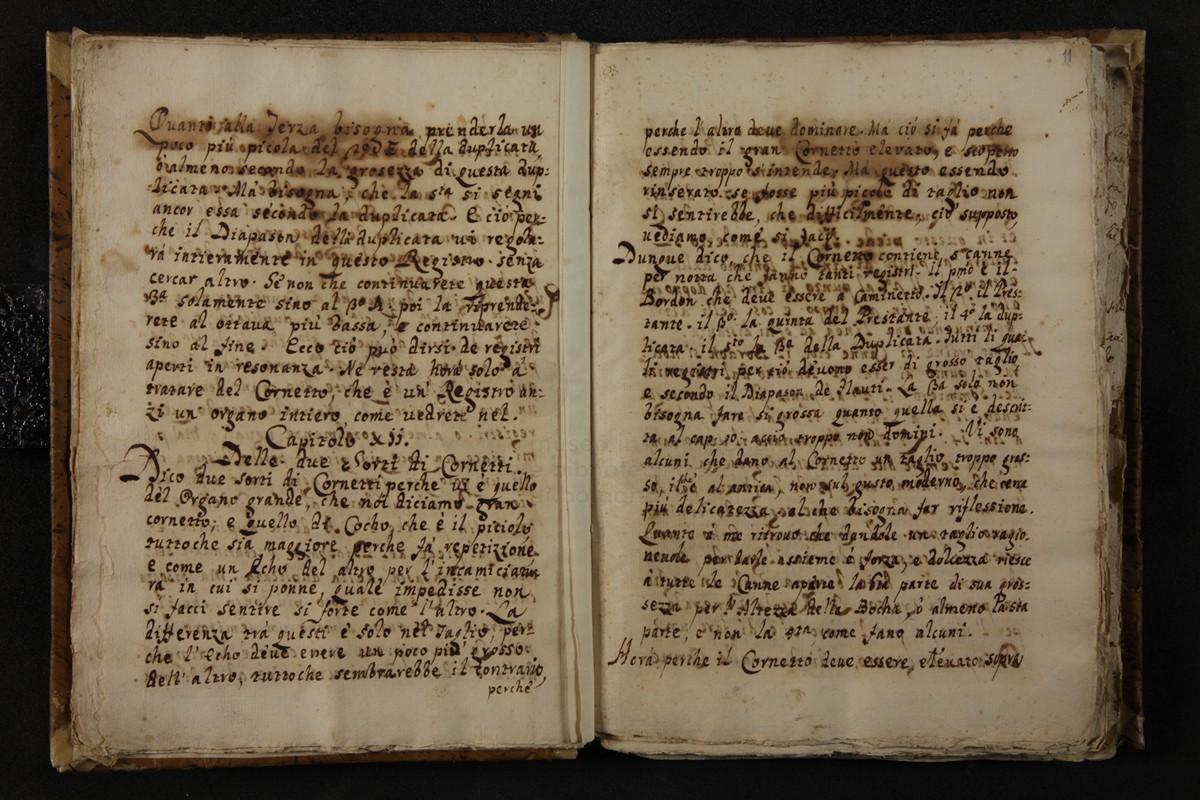 Quanto alla Terza bisogna prenderla un
poco più picola del della duplicata,
ò almeno secondo la grosezza di questa dup-
licata. Mà bisogna, che la sta si segni
ancor essa secondo la duplicata. E ciò per-
che il Diapason della duplicata vi regola-
rà intieramente in questo Registro senza
cercar altro. Se non che continuarete questa
solamente sino al poi la riprende-
rete al ottava più bassa, e continuarete
sino al fine. Ecco ciò può dirsi de registri
aperti in resonanza. Ne resta hora solo à
tratare del Cornetto, che è un Registro an-
zi un organo intiero come vedrete nel.
Capitolo XII.
Delle due Sorti di Cornetti.
Dico due sorti di Cornetti perche vi è quello
del Organo grande, che noi diciamo gran
cornetto; e quello di Echo, che è il piciolo
tuttoche sia maggiore perche fà repetizione
e come un Echo del altro per l'incamiciatu-
ra in cui si ponne, quale impedisse non
si facci sentire si forte come l'altro. La
differenza trà questi è solo nel Taglio, per-
che l'Echo deve evere un poco più grosso
dell'altro, tuttoche sembrarebbe il contrario,
perche
11
perche l'altro deve dominare. Mà ciò si fà perche
essendo il gran Cornetto elevato, e
sempre troppo s'intende, Mà questo essendo
rinserato se fosse più picolo di taglio non
si sentirebbe, che difficilmente, ciò supposto,
vediamo, come si facci.
Dunque dico, che il Cornetto contiene, 5 canne
per notta che fanno tanti registri. Il pmo è il
Bordon che deve essere à Caminetto. Il 2do. il Pres-
tante. il 3o. la quinta del Prestante. il 4o la dup-
licata. il sto la 3a della Duplicata. Tutti li qua-
li registri per ciò devono esser di grosso taglio
e secondo il Diapason de flauti. La 3a solo non
bisogna fare si grossa quanto quella si è descrit-
ta al cap. 10. acciò troppo non domini. Vi sono
alcuni che dano al Cornetto un taglio troppo gros-
so, è al antica, non sul gusto moderno, che cerca
più delicatezza, al che bisogna far riflessione.
Quanto à me ritrovo che dandole un taglio ragio
nevole per darle assieme è forza, e dolcezza riesce
à tutte le Canne aperte la parte di sua gros-
sezza per l'Altezza della Bocha, ò almeno la sta
parte, e non la 4ta come fano alcuni.
Hora perche il Cornetto deve essere, elevato sopra